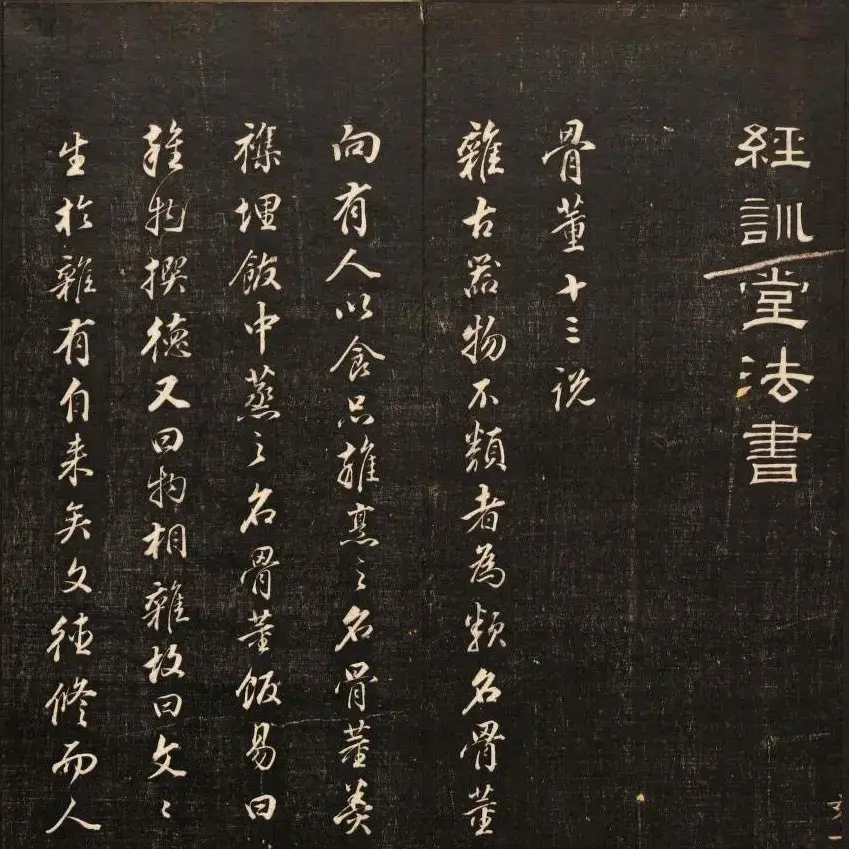 經訓堂法書
骨董十三说
雜古器物不類者為類名骨董
向有人以食只雜烹之名骨董羹
襍埋飯中蒸之名骨董飯易曰
雜物撰德又曰物相雜故曰文〻
生於雜有自来矣文德修而人